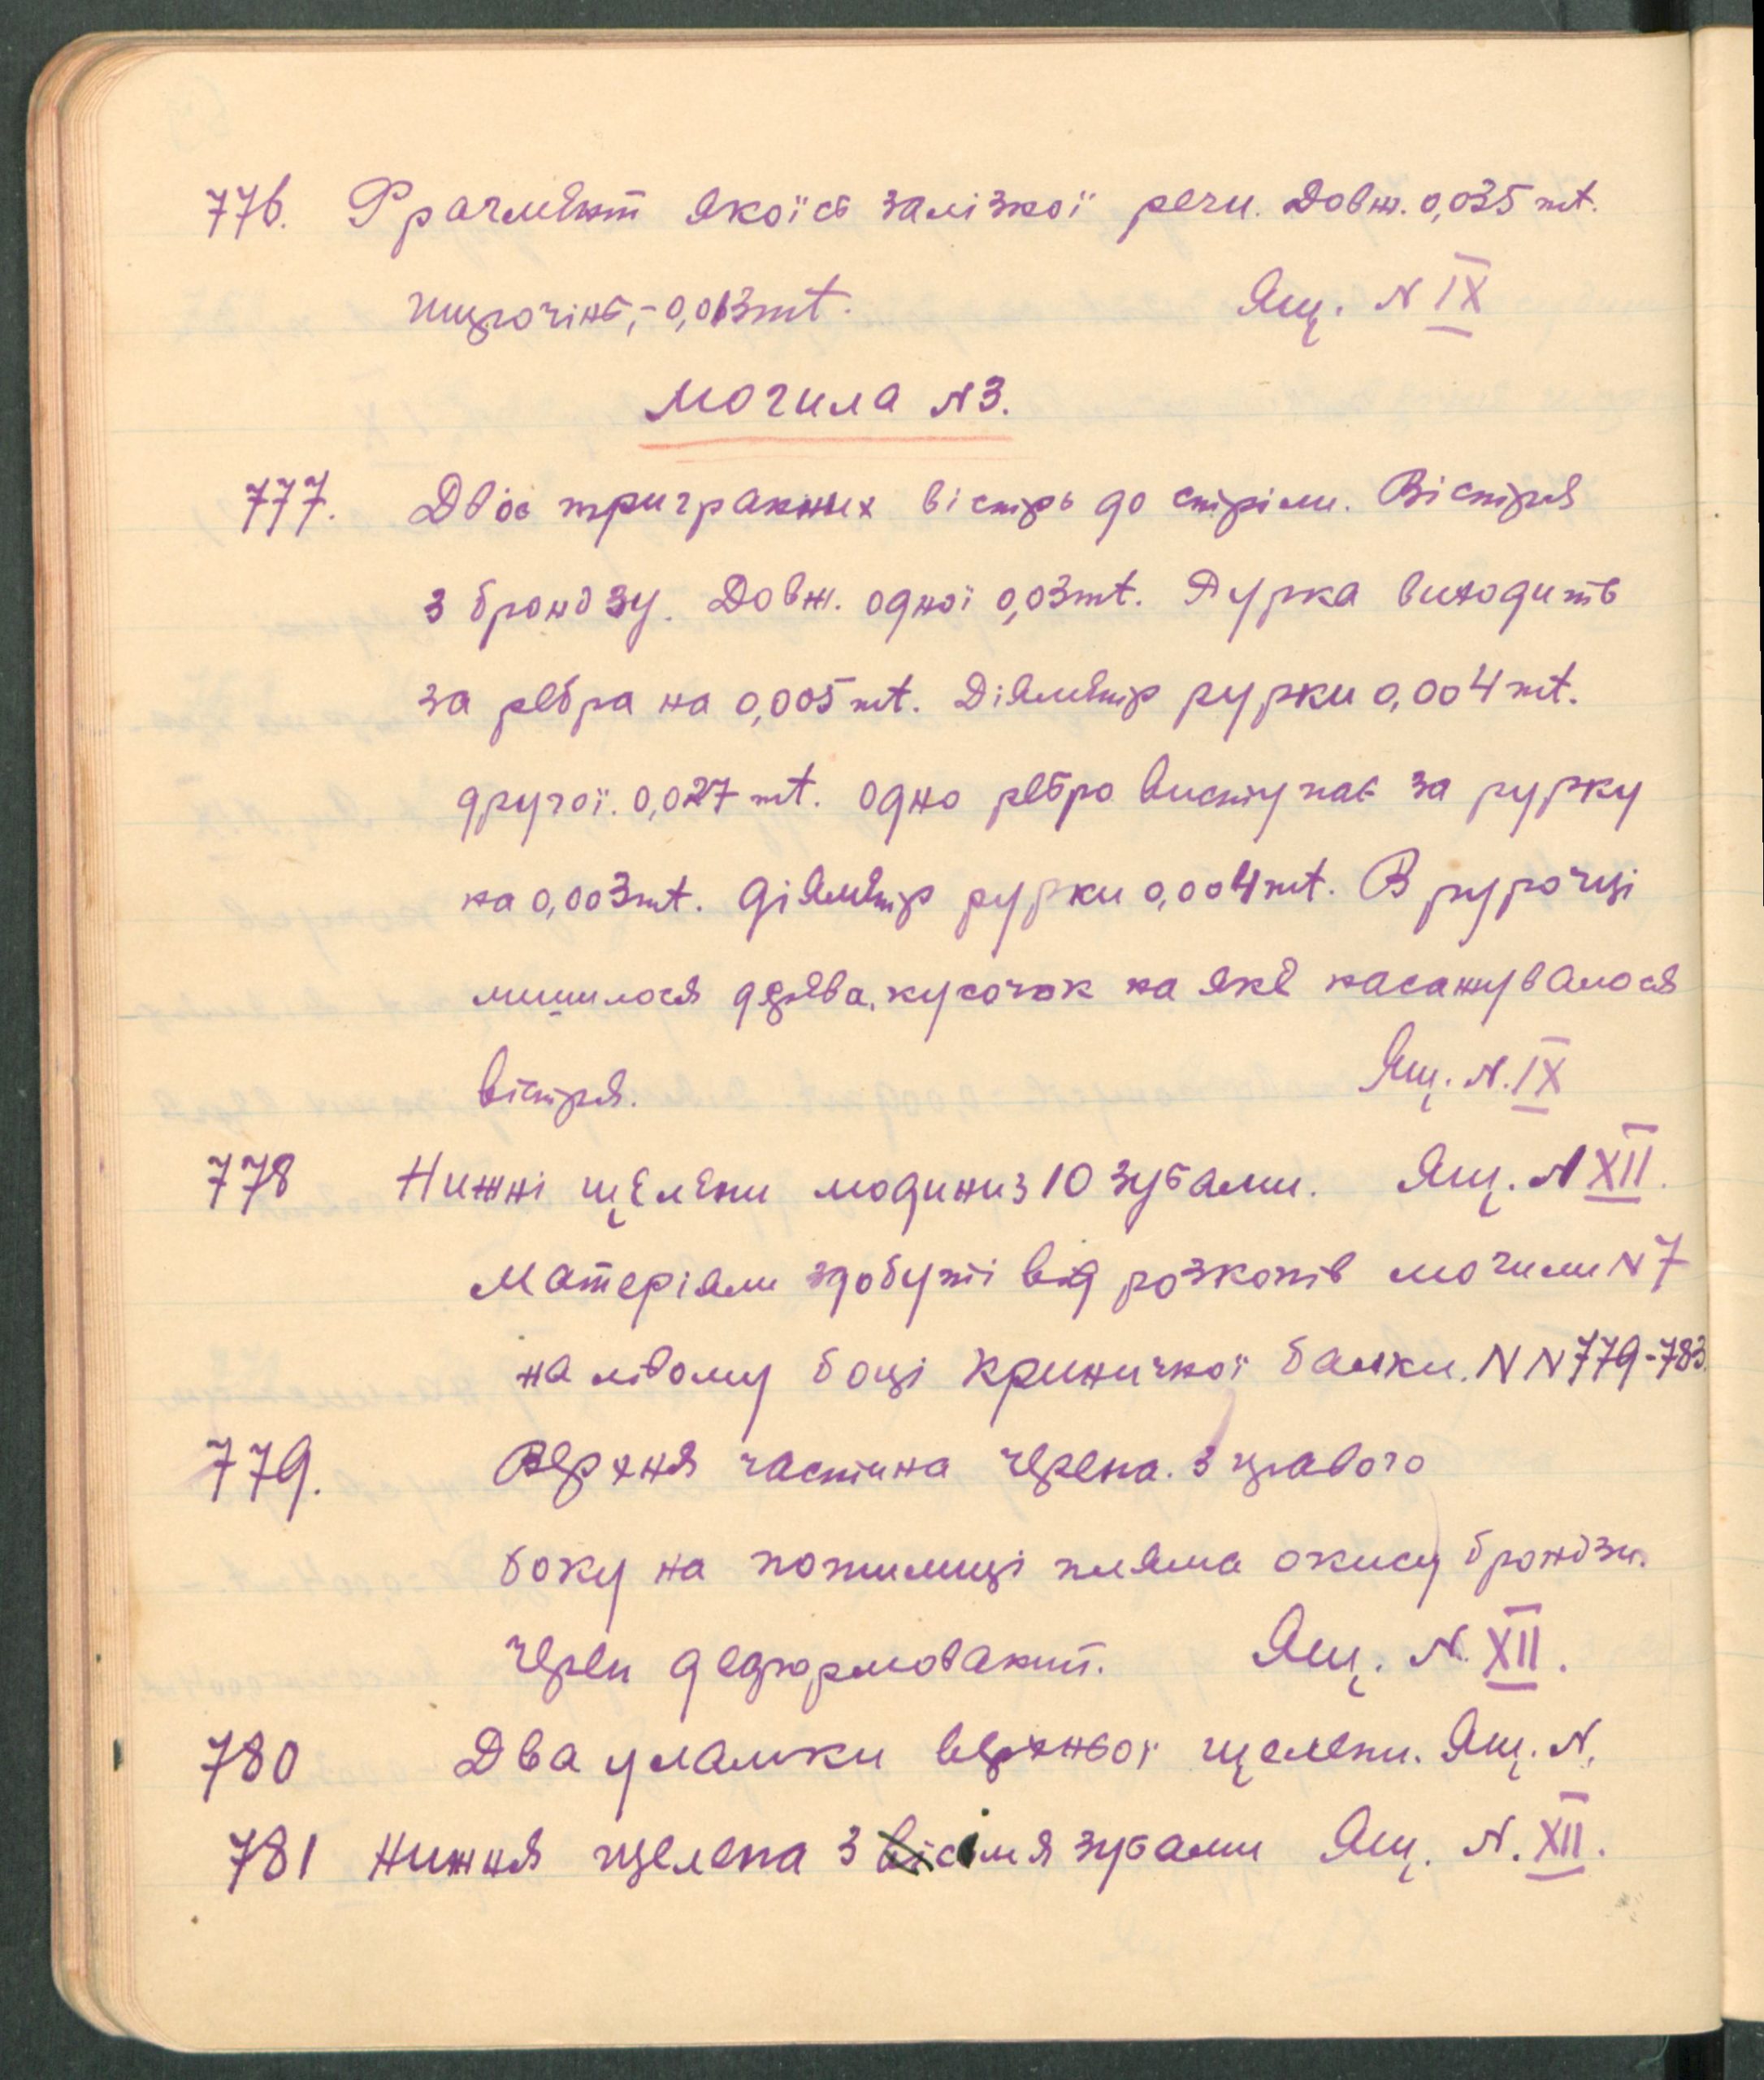 776. Фрагмент якоїсь залізної речи. Довж. 0,035 mt.
широчінь,-0,013mt. Ящ. N IX
Могила N3.
777. Двоє тригранних вістрь до стріли. Вістря
з брондзу. Довж. одної 0,03mt. Рурка виходить
за ребра на 0,005 mt. Діяметр рурки 0,004 mt.
другої. 0,027 mt. Одно ребро виступає за рурку
на 0,003mt. Діяметр рурки 0,004 mt. В рурочці
лишилося дерева, кусочок на яке насажувалося
вістря. Ящ. N. IX
778 Нижні щелепи людини з 10 зубами. Ящ. N XII.
Матеріяли здобуті від розкопів могили N 7
на лівому боці Криничної балки. N N 779-783.
779. Верхня частина черепа. З правого
боку на потилиці пляма окису брондзи.
Череп деформований. Ящ. N. XII.
780 Два уламки верхньої щелепи. Ящ. N.
781 Нижня щелепа з сімя зубами Ящ. N. XII.